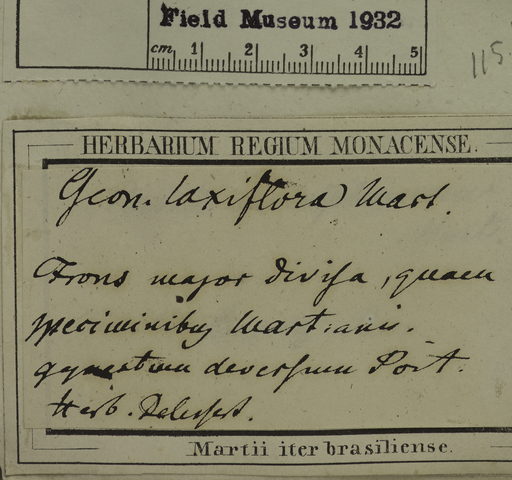 Field Museum 1932
cm 1 2 3 4 5
115
HERBARIUM REGIUM MONACENSE.
Geon. laxiflora Mart.
Frons major divisa, quam
speciminibus Martianis.
Poit.
Herb. Delessert.
Martii iter brasiliense.